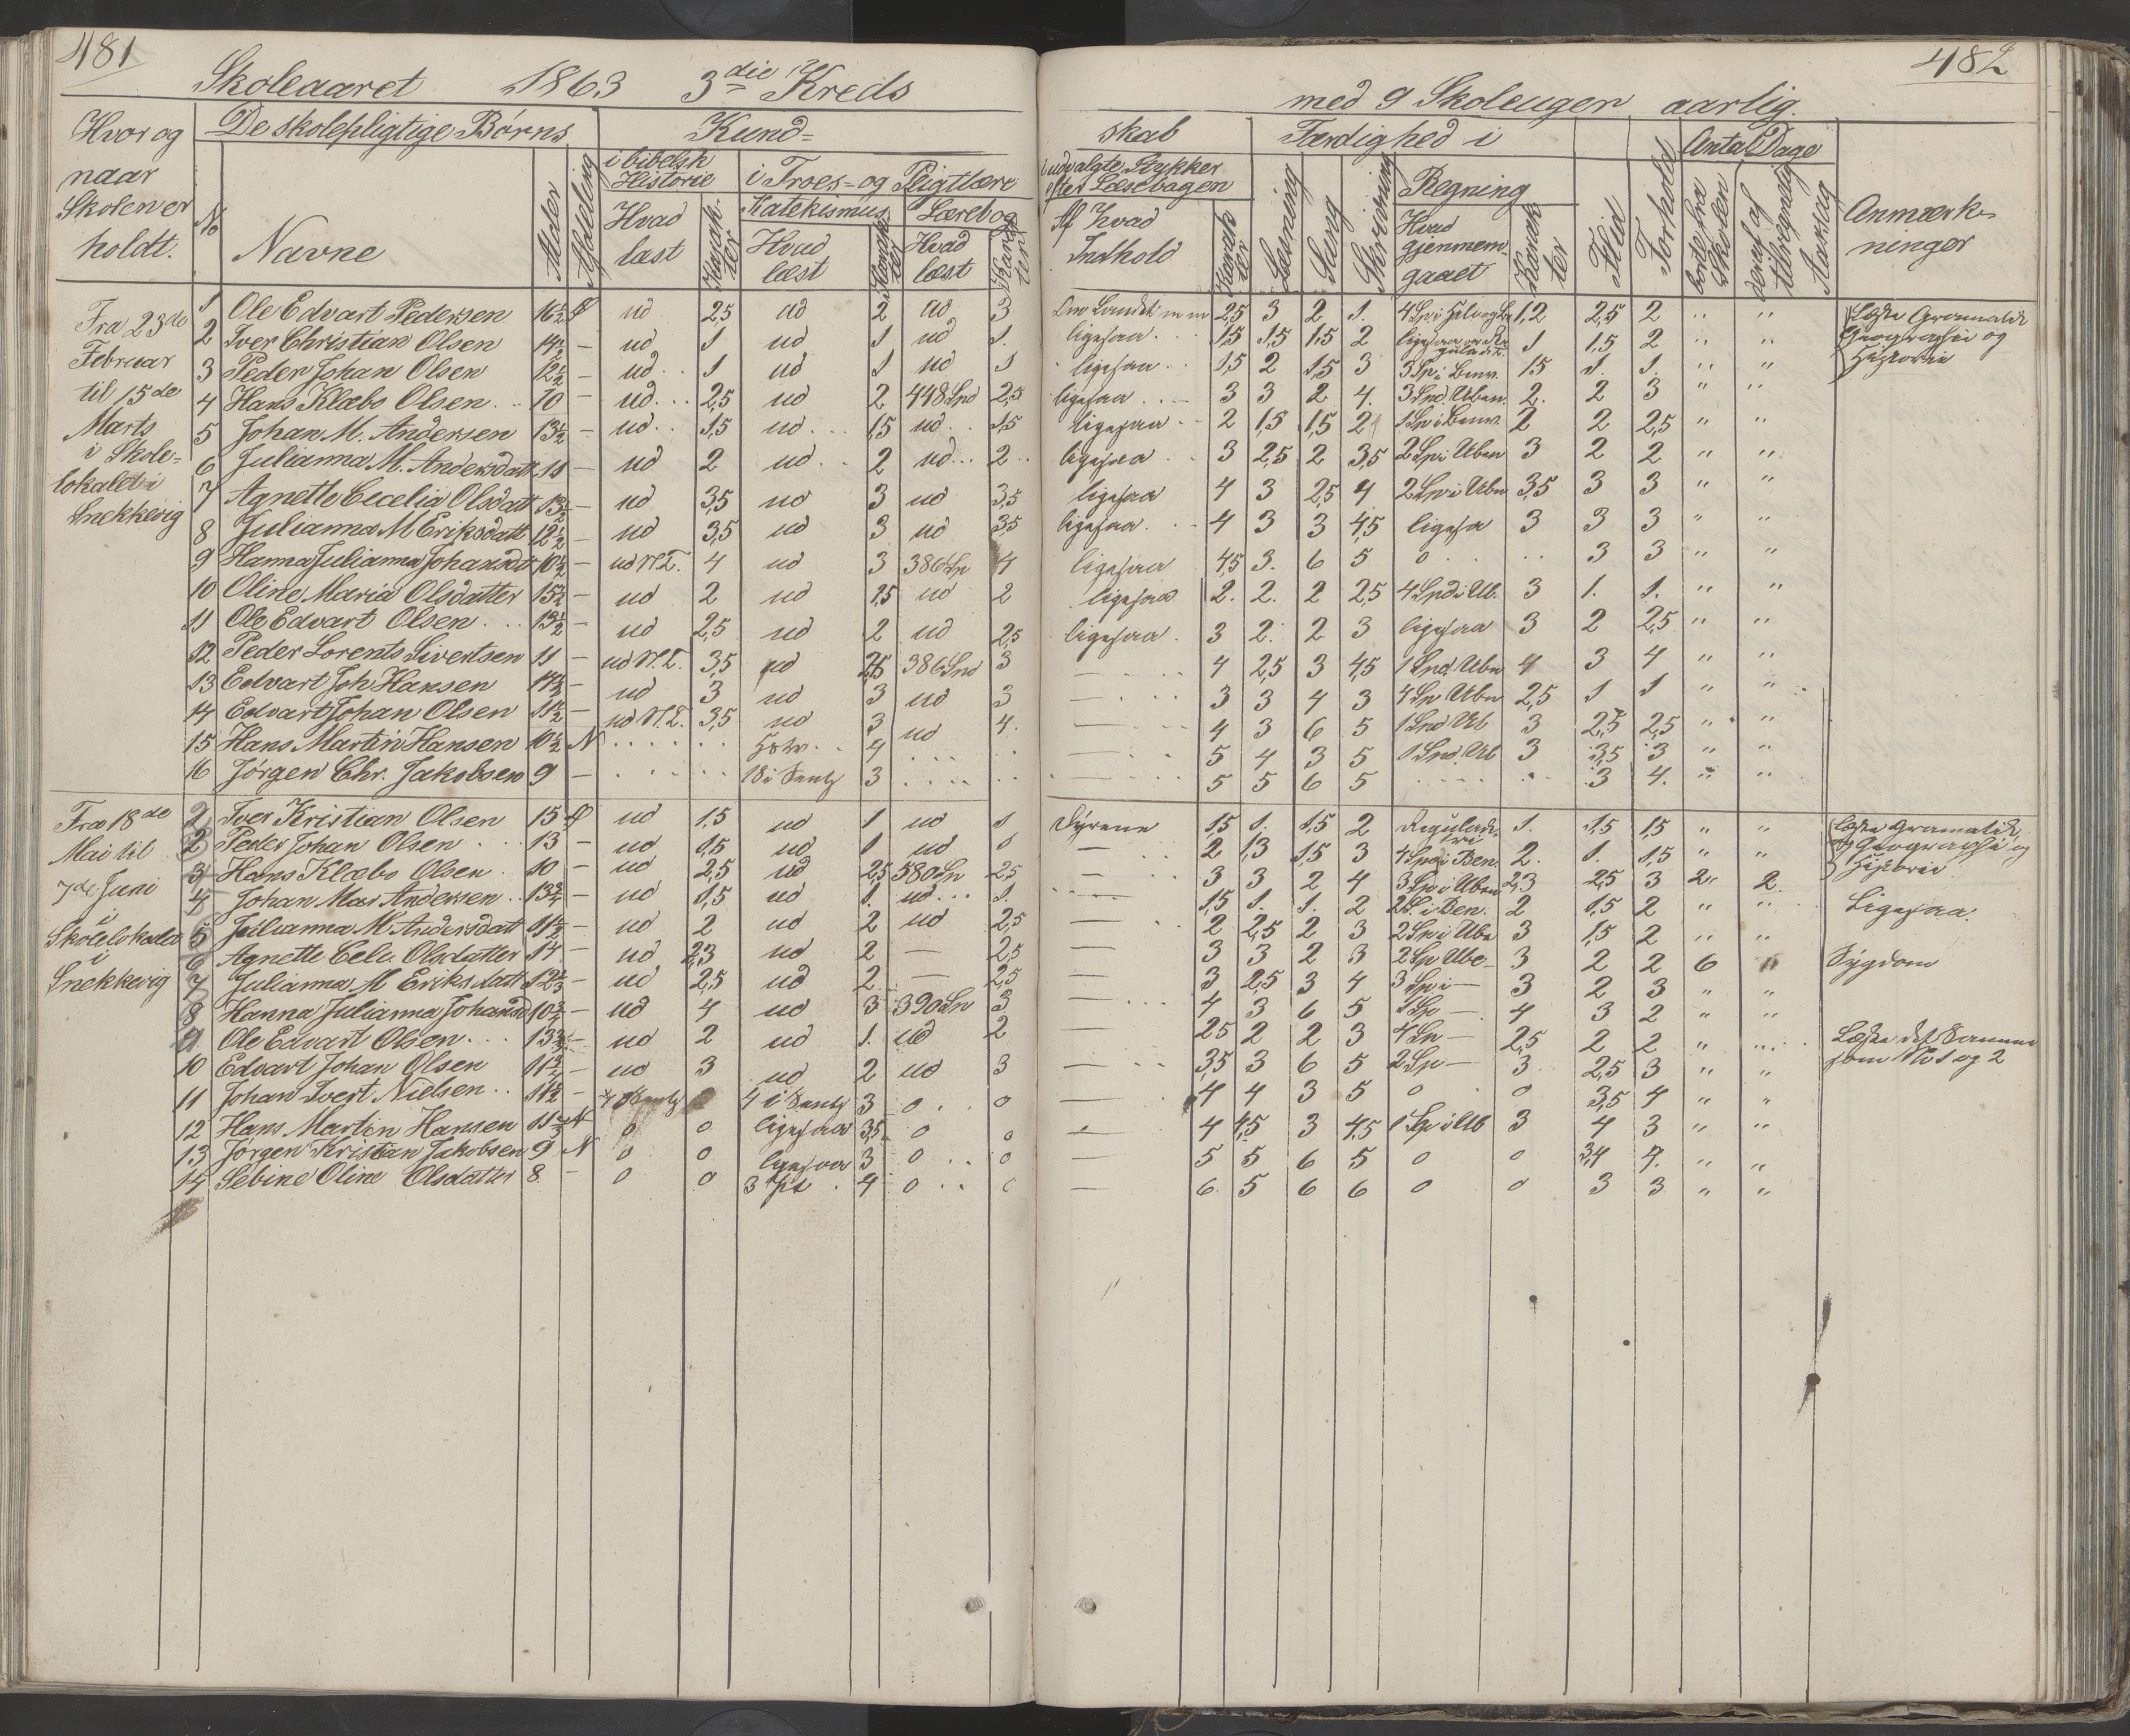 481
Skoleaaret 1863 3die Kreds
Hvor og naar Skolen er holdt.
De skolepligtige Børns
Kund-
No
Navne
Alder
Afdeling
i bibelsk Historie
Hvad læst
Karakter
i Troes- og Pligtlære
Katekismus
Hvad læst
Karakter
Lærebog
Hvad læst
Karakter
Fra 23de
Februar
til 15de
Marts
i Skole-
lokalet i
Snekkevig
1 Ole Edvart Pedersen 16½ ud 2,5 ud 2 ud 3
2 Iver Christian Olsen 14½ – ud 1 ud 1 ud 1.
3 Peder Johan Olsen 12½ – ud 1 ud 1 ud 1
4 Hans Klæbo Olsen 10 – ud 2,5 ud 2 448 Sp 2,5
5 Johan M. Andersen 13½ – ud 1,5 ud 1,5 ud 1,5
6 Julianna M. Andersdatt 11 – ud 2 ud 2 ud 2
7 Agnette Cecelia Olsdatt 13½ – ud 3,5 ud 3 ud 3,5
8 Julianna M Eriksdatt 12½ – ud 3,5 ud 3 ud 3,5
9 Hanna Julianna Johansdt 10½ – ud N.T. 4 ud 3 386 Sp 4
10 Oline Maria Olsdatter 15½ – ud 2 ud 1,5 ud 2
11 Ole Edvart Olsen 13½ – ud 2,5 ud 2 ud 2,5
12 Peder Lorents Sivertsen 11 – ud N.T. 3,5 ud 2,5 386 3
13 Edvart Joh Hansen 14½ – ud 3 ud 3 ud 3
14 Edvart Johan Olsen 11½ – ud N.T. 3,5 ud 3 ud 4.
15 Hans Martin Hansen 10½ N 4
16 Jørgen Chr. Jakobsen 9 – 3
Fra 18de
Mai til
7de Juni
i
Skolelokalet
i
Snekkevig
2 Iver Kristian Olsen 15 ud 1,5 ud 1 ud 1
2 Peder Johan Olsen 13 – ud 1,5 ud 1 ud 1
3 Hans Klæbo Olsen 10 – ud 2,5 ud 2,5 580 Sp 2,5
4 Johan Mar Andersen 13¾ – ud 1,5 ud 1. ud 1.
5 Julianna M Andersdatt 11½ – ud 2 ud 2 ud 2,5
6 Agnette Olsdatter 14 – ud 2,3 ud 2 — 2,5
7 Julianna M Eriksdatt – ud 2,5 ud 2 — 2,5
8 Hanna Julianna Johansd 10¾ – ud 4 ud 3 390 Sp 3
9 Ole Edvart Olsen 13¾ – ud 2 ud 1. ud 2
10 Edvart Johan Olsen – ud 3 ud 2 ud 3
11 Johan Ivert Nielsen 11½ – 3 0 0
12 Hans Martin Hansen N 0 0 ligesaa 3,5 0 0
13 Jørgen Kristian Jakobsen 9 N 0 0 ligesaa 3 0 0
14 Sebine Oline Olsdatter 8 – 0 0 4 0
482
med 9 Skoleuger aarlig.
skab
Færdighed i
Antal Dage
i udvalgte Stykker efter Læsebogen
Af hvad Indhold
Karakter
Læsning
Sang
Skrivning
Regning
Hvad gjennemgaaet
Karakter
Flid
Forhold
borte fra Skolen
deraf af tilbregnelig Aarsag
Anmærkninger
2,5 3 2 1. 1,2 2,5 2 " "
ligesaa 1,5 1,5 1,5 2 1 1,5 2 " "
ligesaa 1,5 2 1,5 3 1,5 1. 1. " "
ligesaa 3 3 2 4. 2. 2 3 " "
ligesaa 2 1,5 1,5 2 2 2 2,5 " "
ligesaa 3 2,5 2 3,5 2 Sp i Uben 3 2 2 " "
ligesaa 4 3 2,5 4 2 Sp i Uben 3,5 3 3 " "
ligesaa 4 3 3 4,5 ligesa 3 3 3 " "
ligesaa 4,5 3. 6 5 0 3 3 " "
ligesaa 2. 2. 2 2,5 3 1. 1. " "
ligesaa 3 2. 2 3 ligesaa 3 2 2,5 " "
— 4 2,5 3 4,5 4 3 4 " "
— 3 3 4 3 4 Sp Ubn 2,5 1 1 " "
— 4 3 6 5 3 2,5 2,5 " "
— 5 4 3 5 3 3,5 3 " "
— 5 5 6 5 3 4. " "
Læste Gramatik
Geographie og
Historie
Dyrene 1,5 1. 1,5 2 Reguladetri 1. 1,5 1,5 " "
— 2 1,3 1,5 3 2. 1. 1,5 " "
— 3 3 2 4 3 Sp i Uben 2,3 2,5 3 2 2
— 1,5 1. 1. 2 2 1,5 2 " "
— 2 2,5 2 3 2 Sp i Ube 3 1,5 2 " "
— 3 3 2 3 2 Sp Ube 3 2 2 6 "
— 3 2,5 3 4 3 Sp i — 3 2 3 " "
— 4 3 6 5 1 Sp — 4 3 2 " "
— 2,5 2 2 3 4 Sp — 2,5 2 2 "
— 3,5 3 6 5 2 Sp — 3 2,5 3 " "
— 4 4 3 5 0 0 3,5 4 " "
— 4 4,5 3 4,5 1 Sp i Ub 3 4 3 " "
— 5 5 6 5 0 0 3,4 4. " "
— 6 5 6 6 0 0 3 3 " "
Læste Gramatik
og Geographie og
Historie
Ligesaa.
Sygdom
Læste det Samme
som No 1 og 2